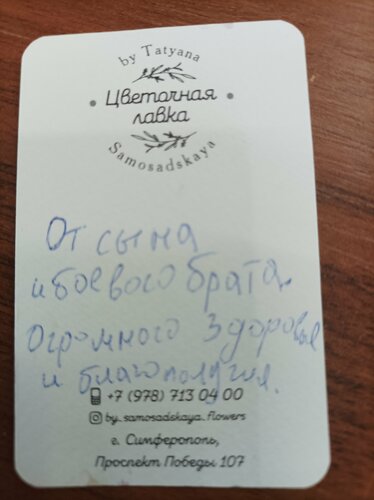 by Tatyana
Цветочная
лавка
Samosadskaya
От сына
и боевого брата.
Огромного здоровья
и благополучия.
+7 (978) 713 04 00
by_samosadskaya_flowers
г. Симферополь,
Проспект Победы 107